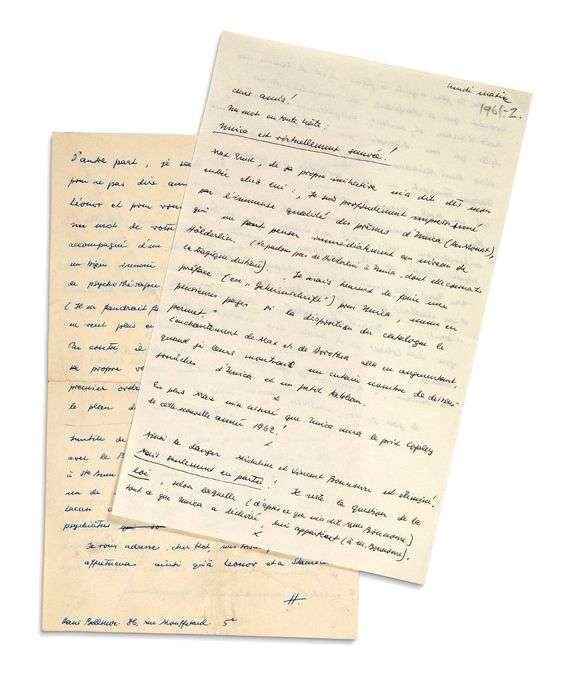 lundi matin
1961-2.
chers amis!
Un mot en toute hâte:
Unica est virtuellement sauvée!
Max Ernst, de sa propre initiative m'a dit dès mon
entrée chez lui: "Je suis profondément impressionné
par l'immense qualité des poèmes d'Unica
qui me font penser immédiatement au niveau de
Hölderlin, (la passion pour de Hölderlin à Unica dont elle connaît
le tragique destin). "Je serais heureux de faire une
préface (en "Geheimschrift") pour Unica, même en
plusieurs pages si la disposition du catalogue le
permet."
L'enchantement de Max et de Dorothea alla en augmentant,
quand je leurs montrait un certain nombre de dessins
d'Unica et un petit tableau.
En plus Max m'a assuré que Unica aura le prix Copley
de cette nouvelle année 1962!
Ainsi le danger et Vincent Bounoure est éliminé!
mais seulement en partie! Il reste la question de la
loi, selon laquelle (d'après ce que m'a dit Mme Bonnanow)
tout ce que Unica a achevé, lui appartient (à M. Bonnanow).
D'autre part, je
pour ne pas dire
Léonor et pour vous
un mot de votre
accompagné d'un
un bijou
de psychothérapie
(Il ne faudrait
ne veut plus en
Au contraire
sa propre
premier ordre
le plan de
inutile de
avec le B
à Ste Anne
un de
Lacan
psychiâtres
Je vous adresse, cher Kot,
affectueux ainsi qu'à Léonor et à Stanis
H.
Hans Bellmer. 86, rue Mouffetard. 5e